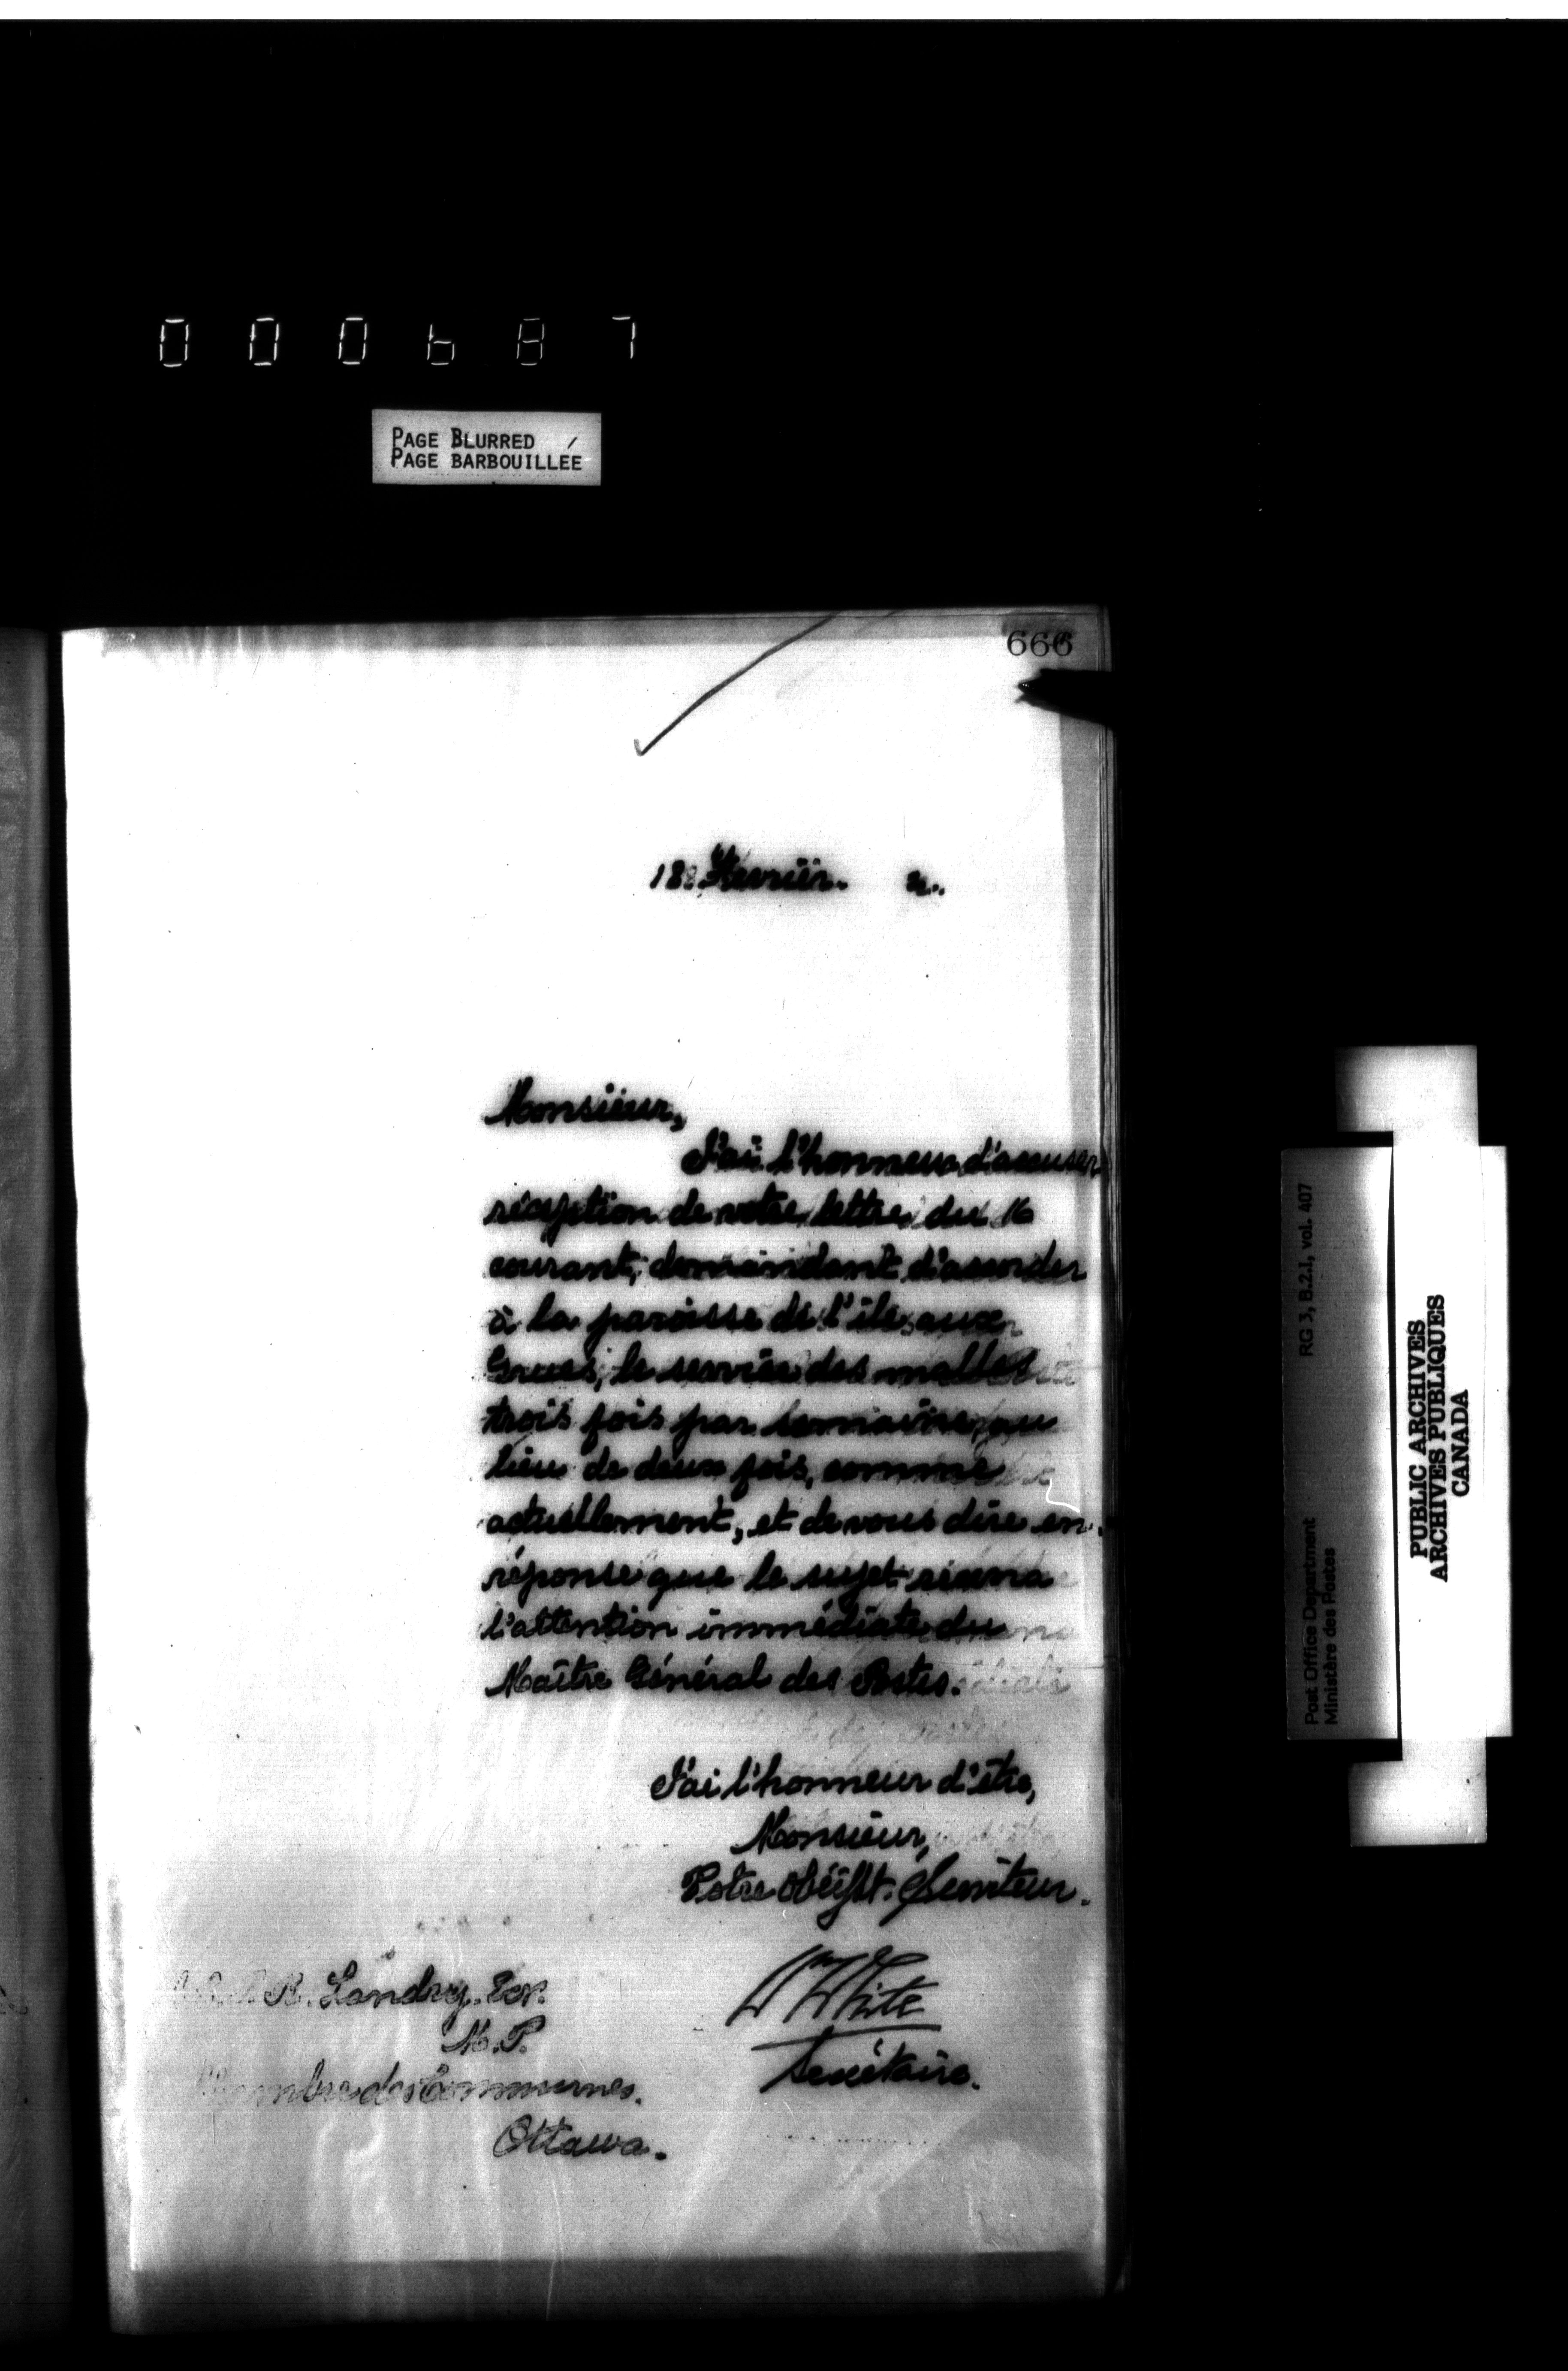 000687
PAGE BLURRED
PAGE BARBOUILLÉE
666
18 Fevrier. 2.
Monsieur,
J'ai l'honneur d'accuser
réception de votre lettre du 16
courant, demandant d'accorder
à la paroisse de l'île aux
Grues, le service des malles
trois fois par semaine, au
lieu de deux fois, comme
actuellement, et de vous dire en
réponse que le sujet recevra
l'attention immédiate du
Maître Général des Postes.
J'ai l'honneur d'être,
Monsieur,
Votre Obéisst. Serviteur.
WWhite
Secrétaire.
R. Landry. Ecr.
M.P.
Chambre des Communes.
Ottawa.
Post Office Department RG 3, B.2.I, vol. 407
Ministère des Postes
PUBLIC ARCHIVES
ARCHIVES PUBLIQUES
CANADA